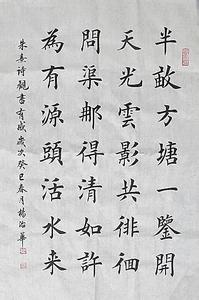 半畝方塘一鑒開
天光雲影共徘徊
問渠那得清如許
為有源頭活水来
朱熹诗觀書有感歲次癸巳春月楊治華